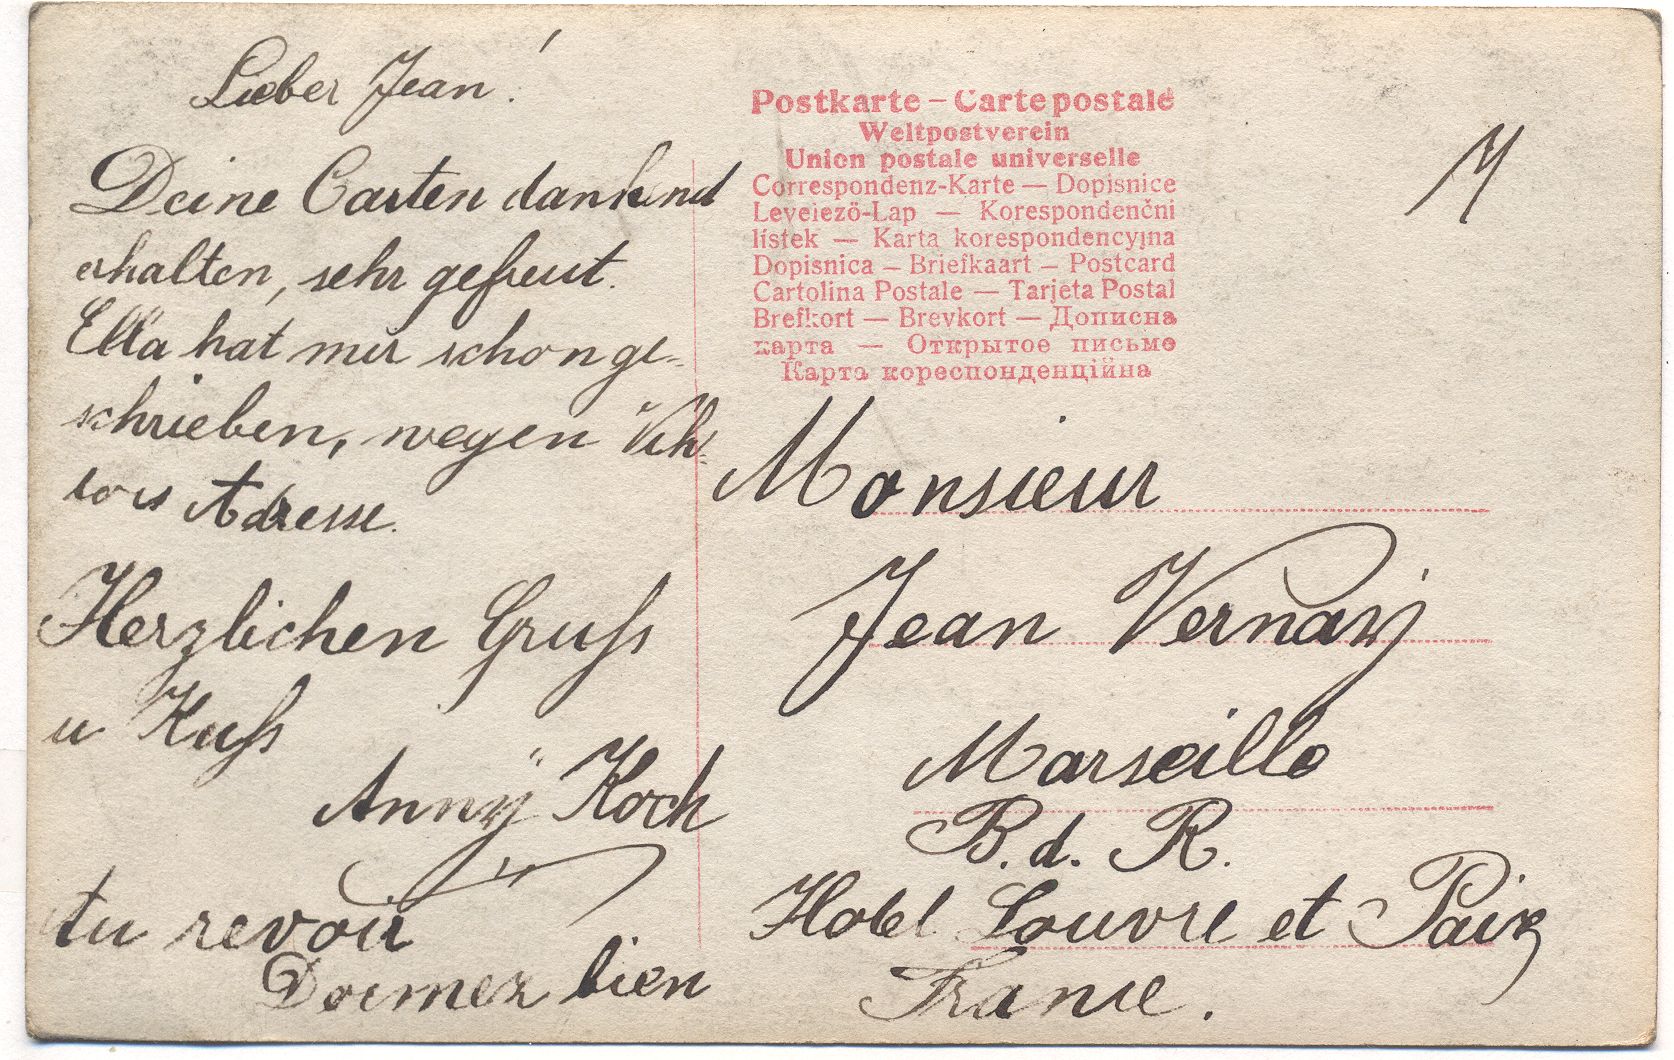 Lieber Jean!
Deine Carten dankend
erhalten, sehr gefreut.
Ella hat mir schon ge-
schrieben, wegen Vik-
tors Adresse.
Herzlichen Gruß
u Kuß
Anny Koch
Au revoir
Dormez bien
Postkarte – Carte postale
Weltpostverein
Union postale universelle
Correspondenz-Karte — Dopisnice
Levelező-Lap — Korespondenční
lístek — Karta korespondencyjna
Dopisnica — Briefkaart — Postcard
Cartolina Postale — Tarjeta Postal
Brefkort — Brevkort — Дописна
карта — Открытое письмо
Карта кореспонденційна
M
Monsieur
Jean
Marseille
B. d. R.
Hotel Louvre et Paix
France.